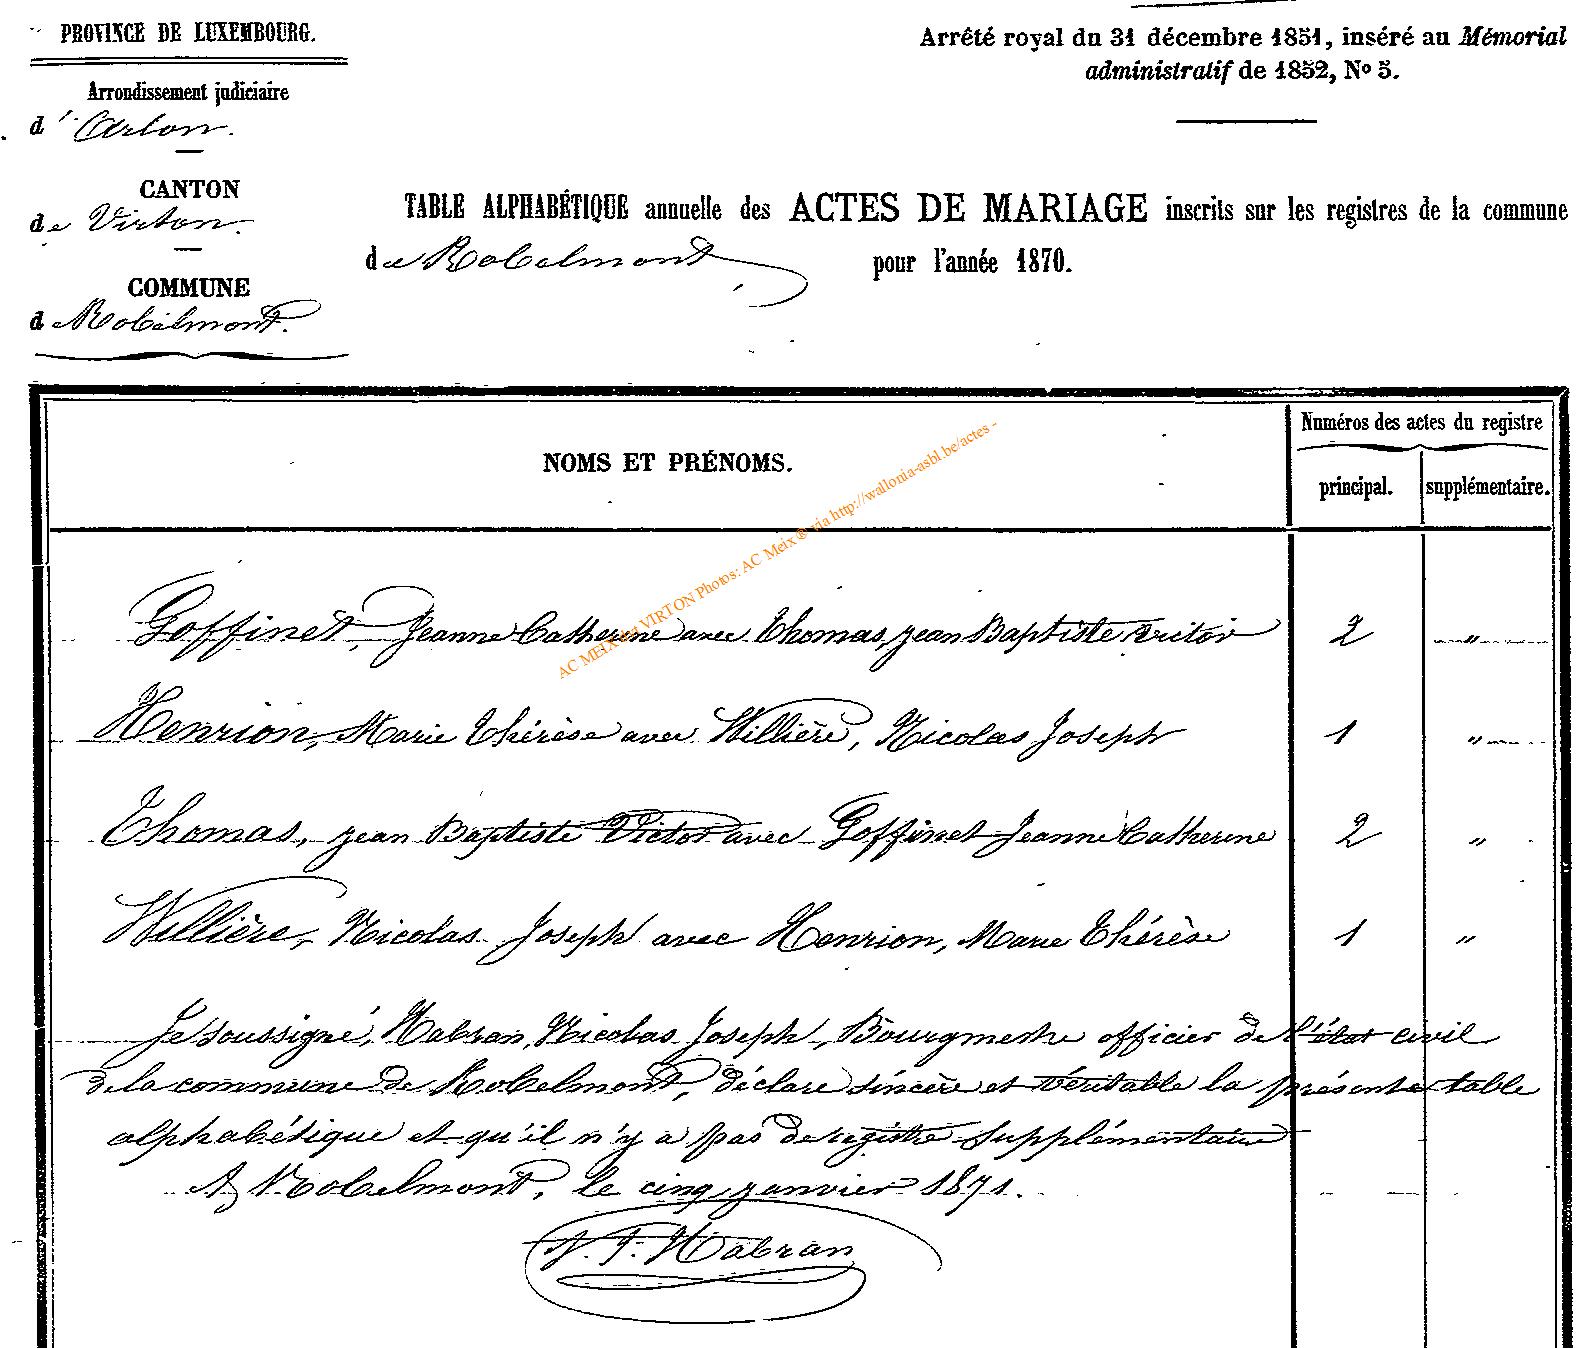 PROVINCE DE LUXEMBOURG.
Arrondissement judiciaire
d'Arlon.
CANTON
de Virton.
COMMUNE
de Robelmont.
Arrêté royal du 31 décembre 1851, inséré au Mémorial
administratif de 1852, No 5.
TABLE ALPHABÉTIQUE annuelle des ACTES DE MARIAGE inscrits sur les registres de la commune
de Robelmont pour l'année 1870.
NOMS ET PRÉNOMS.
Numéros des actes du registre
principal. supplémentaire.
AC MEIX dvt VIRTON Photos: AC Meix® via http://wallonia-asbl.be/actes -
Goffinet, Jeanne Catherine avec Thomas, jean Baptiste Victor 2 "
Henrion, Marie Thérèse avec Willière, Nicolas Joseph 1 "
Thomas, jean Baptiste Victor avec Goffinet Jeanne Catherine 2 "
Willière, Nicolas Joseph avec Henrion, Marie Thérèse 1 "
Je soussigné, Habran, Nicolas Joseph, Bourgmestre officier de l'état civil
de la commune de Robelmont, déclare sincère et véritable la présente table
alphabétique et qu'il n'y a pas de registre supplémentaire
A Robelmont, le cinq janvier 1871.
N. J. Habran